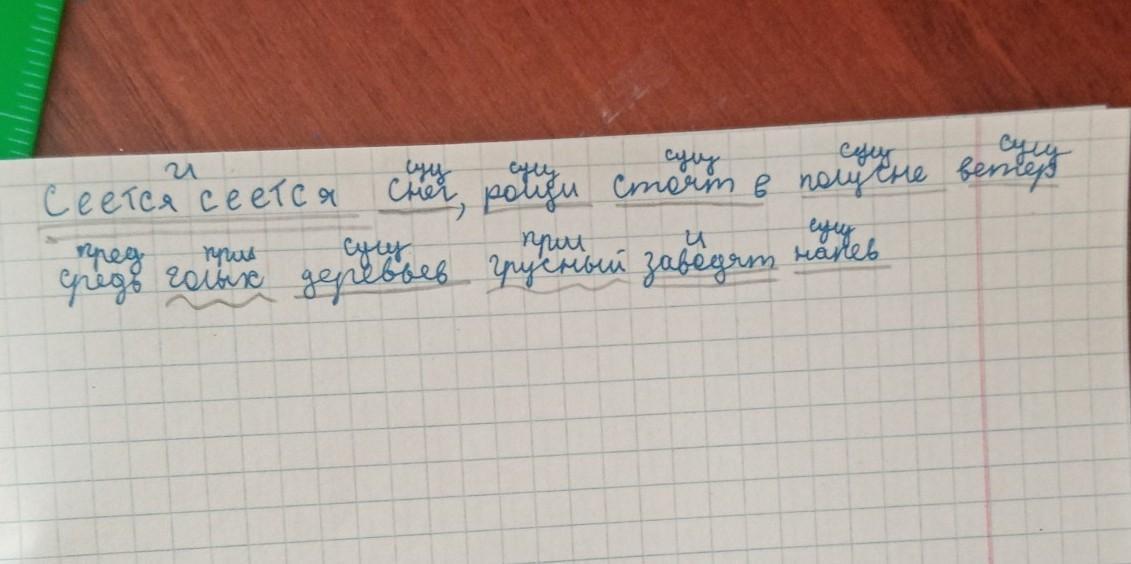 и сущ сущ сущ сущ сущ
Сеется сеется снег, рощи стоят в полусне ветер
пред прил сущ прил и сущ
средь голых деревьев грусный заводят напев